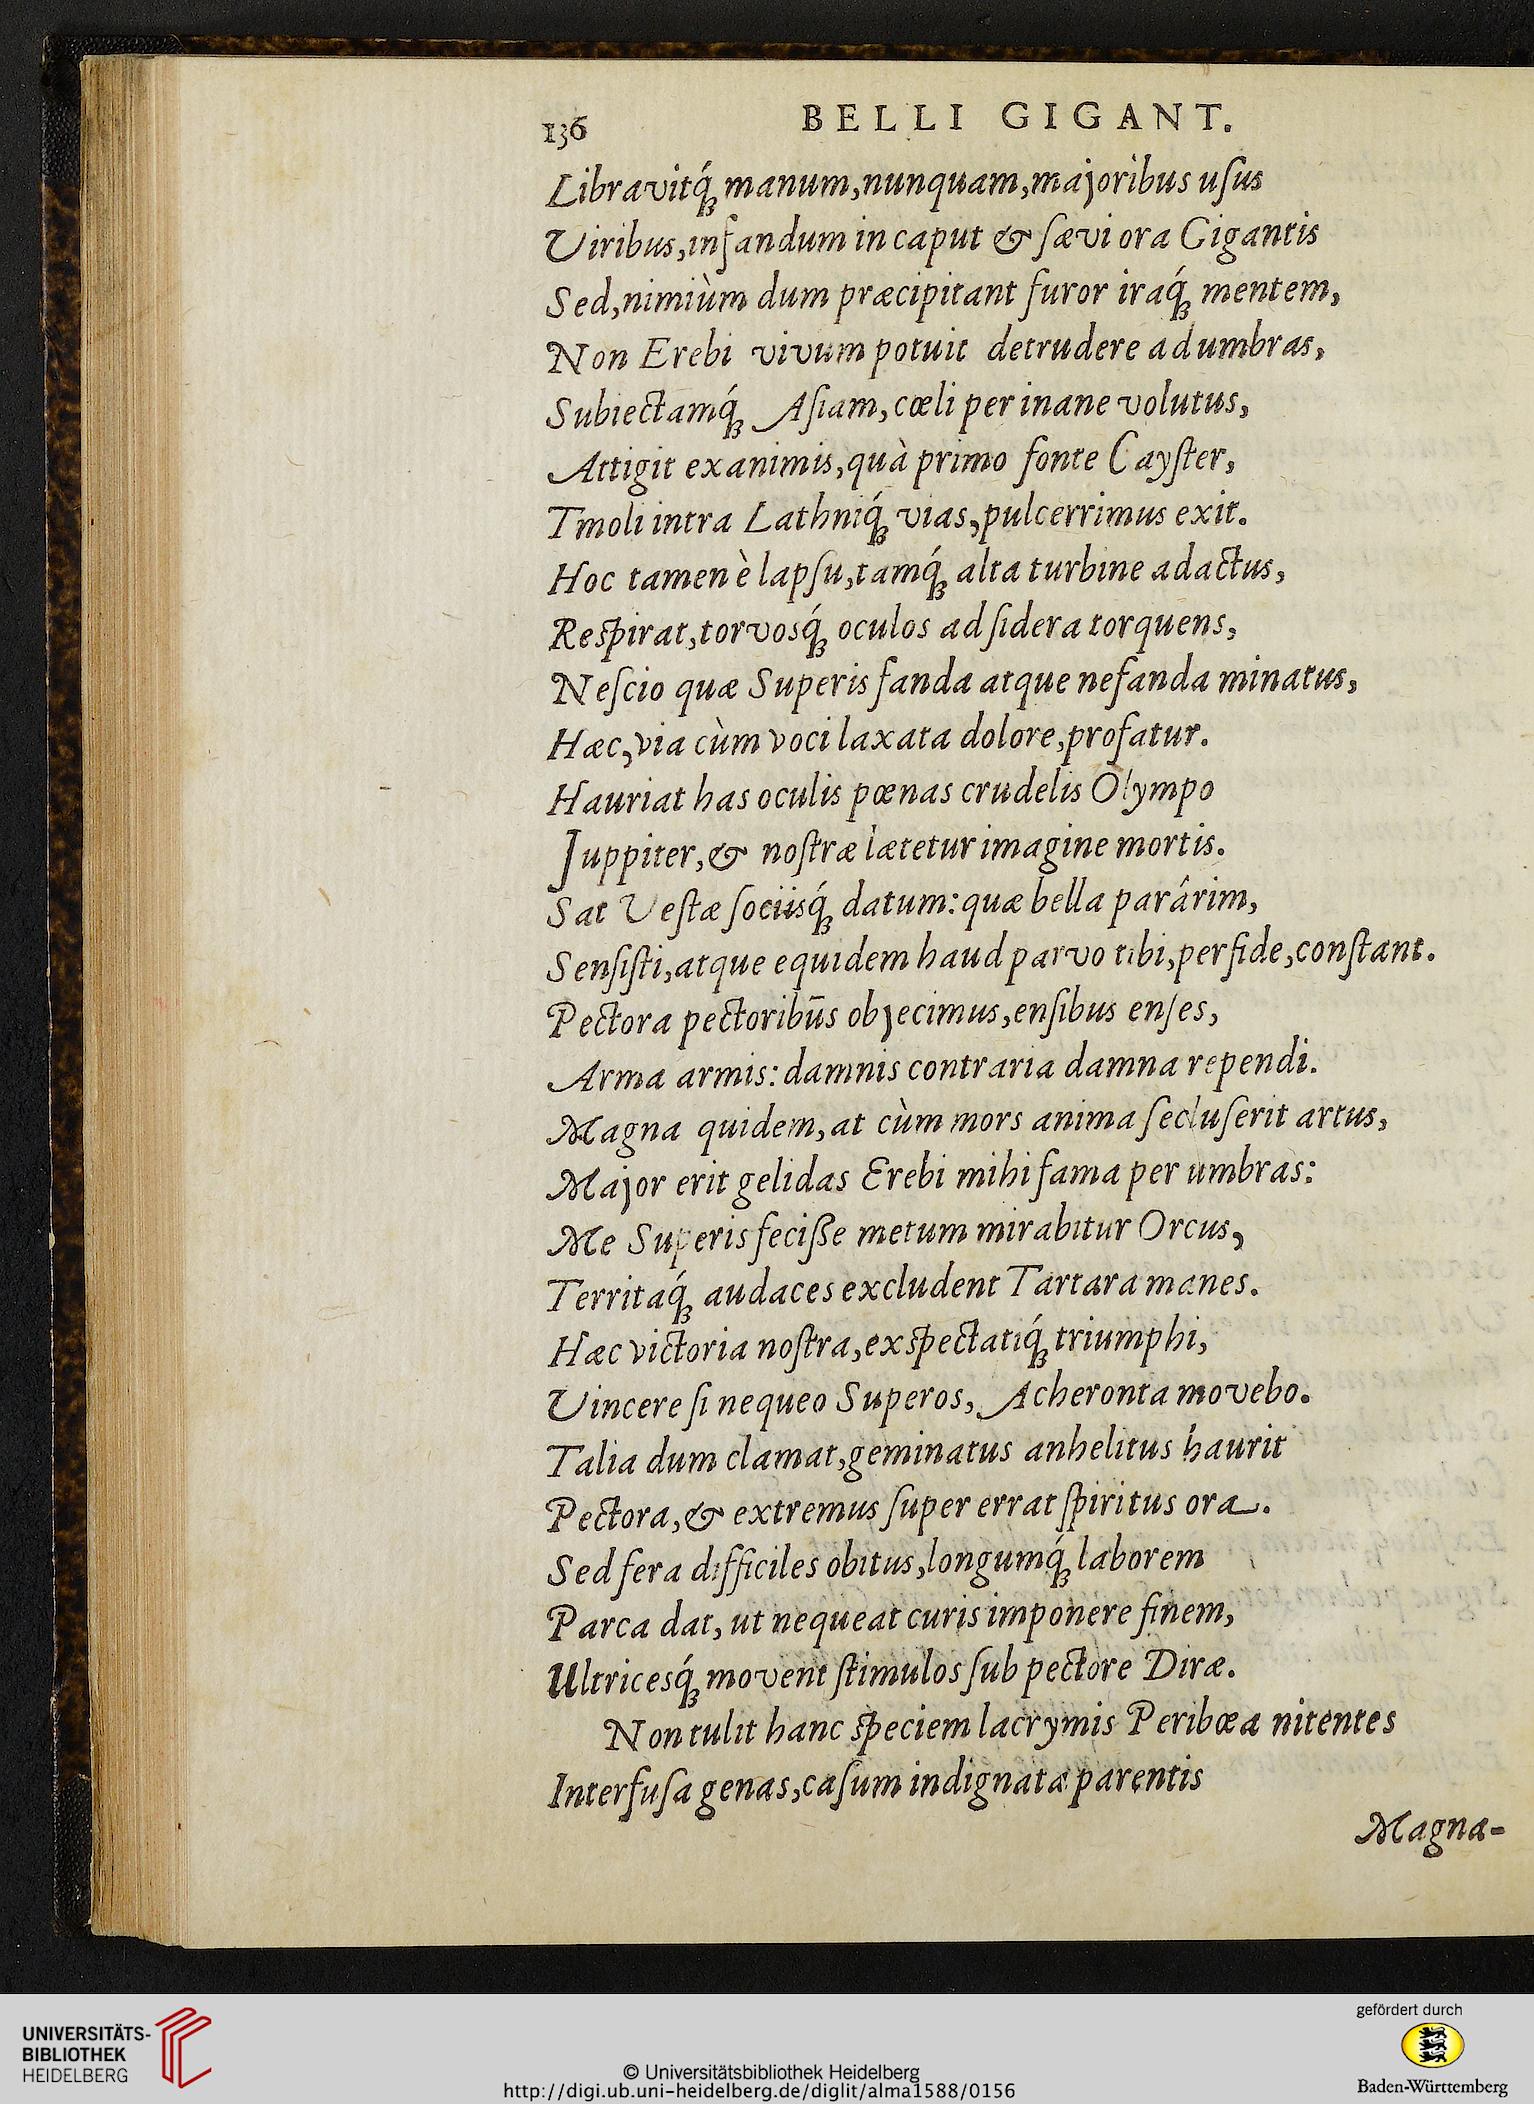 136 BELLI GIGANT.
Libravitq́; manum, nunquam, majoribus uſus
Viribus, infandum in caput & ſævi ora Gigantis
Sed, nimiùm dum præcipitant furor iraq́; mentem,
Non Erebi vivum potuit detrudere ad umbras,
Subiectamq́; Aſiam, cœli per inane volutus,
Attigit exanimis, quà primo fonte Cayſter,
Tmoli intra Lathniq́; vias, pulcerrimus exit.
Hoc tamen è lapſu, tamq́; alta turbine adactus,
Reſpirat, torvosq́; oculos ad ſidera torquens,
Neſcio quæ Superis fanda atque nefanda minatus,
Hæc, via cùm voci laxata dolore, profatur.
Hauriat has oculis pœnas crudelis Olympo
Juppiter, & noſtræ lætetur imagine mortis.
Sat Veſtæ ſociisq́; datum: quæ bella parârim,
Senſiſti, atque equidem haud parvo tibi, perfide, conſtant.
Pectora pectoribūs objecimus, enſibus enſes,
Arma armis: damnis contraria damna rependi.
Magna quidem, at cùm mors anima ſecluſerit artus,
Major erit gelidas Erebi mihi fama per umbras:
Me Superis feciſſe metum mirabitur Orcus,
Territaq́; audaces excludent Tartara manes.
Hæc victoria noſtra, exſpectatiq́; triumphi,
Vincere ſi nequeo Superos, Acheronta movebo.
Talia dum clamat, geminatus anhelitus haurit
Pectora, & extremus ſuper errat ſpiritus ora.
Sed fera difficiles obitus, longumq́; laborem
Parca dat, ut nequeat curis imponere finem,
Ultricesq́; movent ſtimulos ſub pectore Diræ.
Non tulit hanc ſpeciem lacrymis Peribœa nitentes
Interfuſa genas, caſum indignata parentis
Magna-
UNIVERSITÄTS-
BIBLIOTHEK
HEIDELBERG
© Universitätsbibliothek Heidelberg
http://digi.ub.uni-heidelberg.de/diglit/alma1588/0156
gefördert durch
Baden-Württemberg